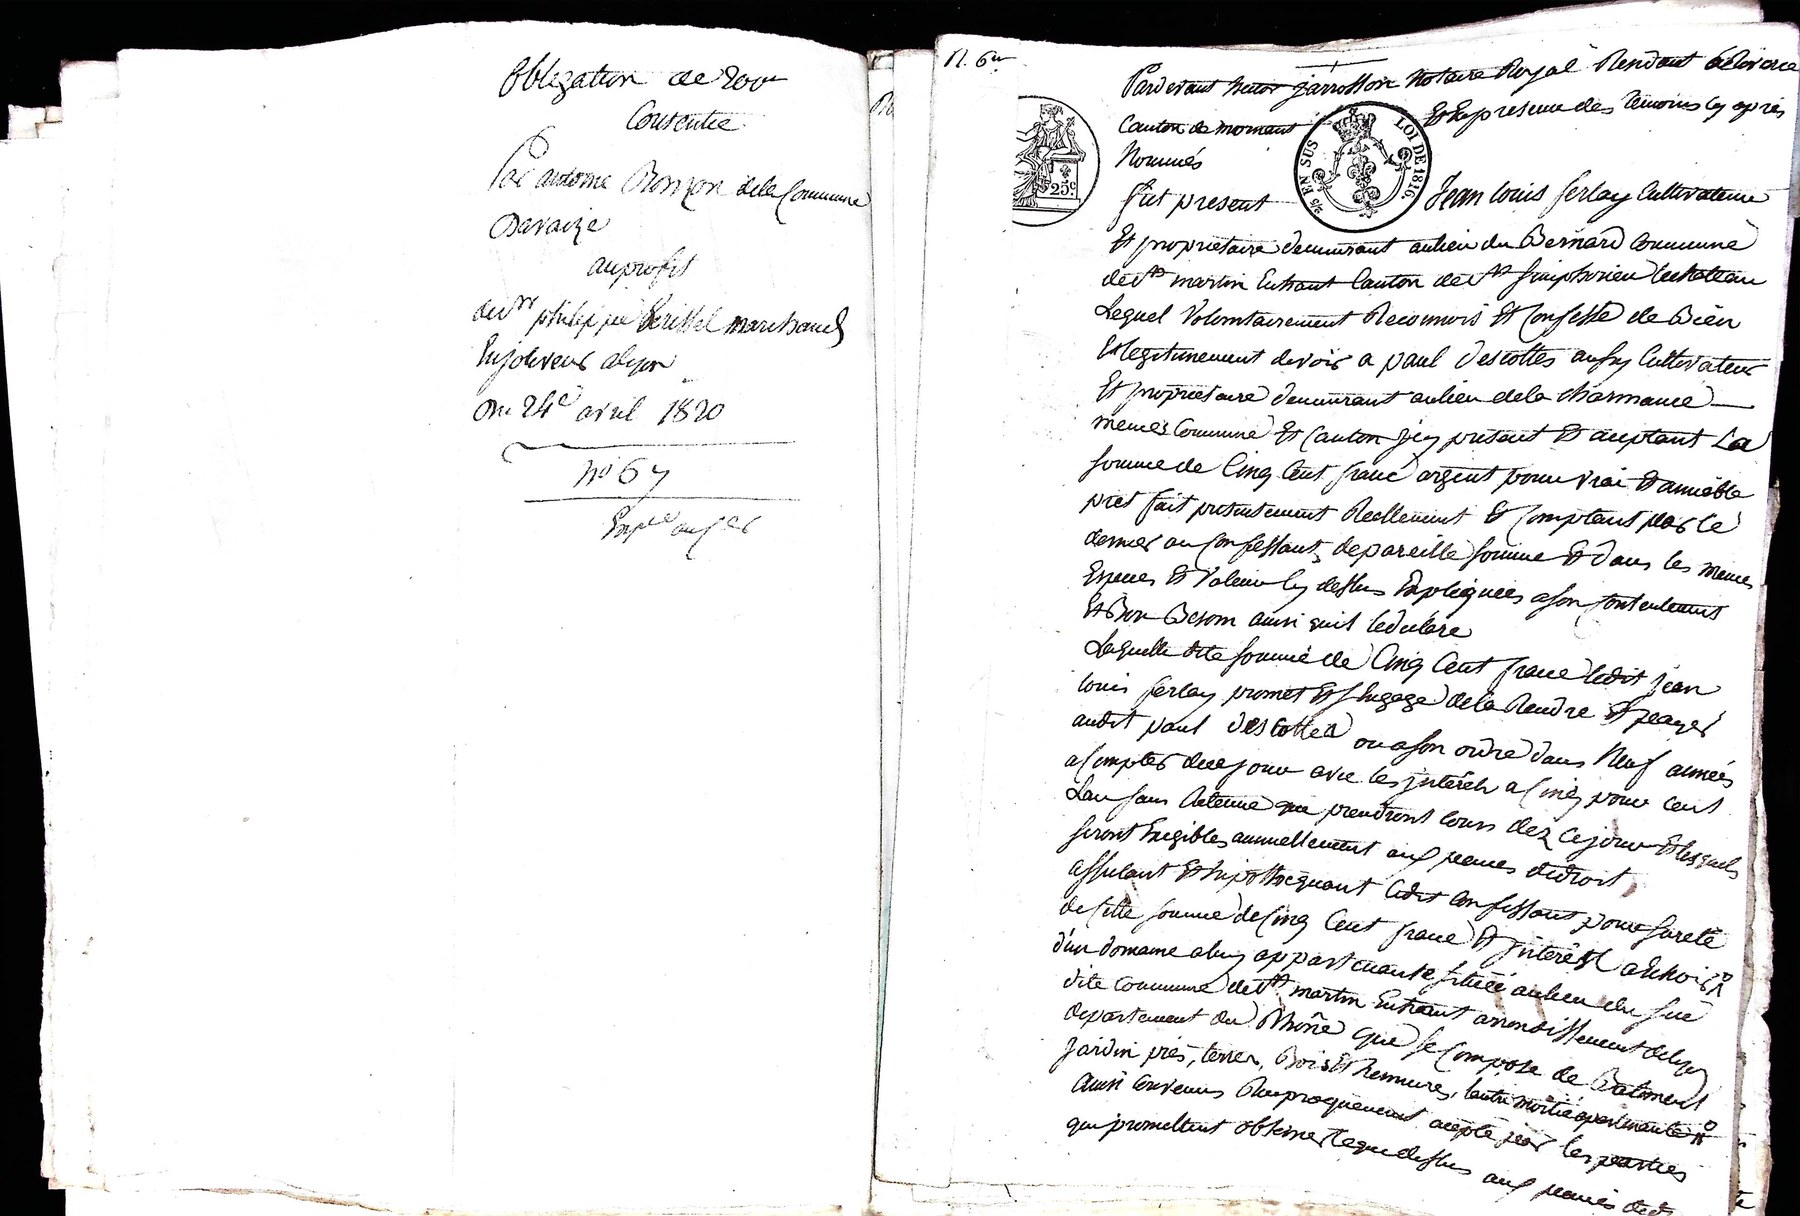 Obligation de 200
Consentie
Par antoine Bonzon dela Commune
Davaize
auprofit
de Sr philippe marchand
Enjoliveur alyon
Du 24e avril 1820
No 67
R. 6
Pardevant hector jarrosson Notaire Royal Rendant
Canton de mornant Et Enpresence des temoins cy après
Nommés
25c
5/5 EN SUS LOI DE 1816.
fut present Jean louis ferlay Cultivateur
Et propriétaire demeurant aulieu du Bernard Commune
de St martin Enhaut Canton de St simphorien lechateau
Lequel Volontairement Reconnois Et Confesse de Bien
Et legitimement devoir a paul descottes aussy Cultivateur
Et propriétaire demeurant aulieu dela
memes Commune Et Canton jcy présent Et aceptant La
somme de Cinq Cent franc argent pour vrai Et amiable
prêt fait presentement Réellement Et Comptant par le
dernier au Confessant, depareille somme Et dans les memes
Especes Et Valeur cy dessus Expliquées ason Contentement
Et Bon Besoin ainsi quil ledéclare
Laquelle dite somme de Cinq Cent franc ledit jean
louis ferlay promet Et sEngage dela Rendre Et payer
audit paul descottes ou ason ordre dans Neuf années
aCompter decejour avec les jntérêts a Cinq pour cent
Lan sans Retenue qui prendront cours dez cejour Et lesquels
seront Exigibles annuellement aux peines dedroit
assurant Et hipothequant ledit Confessant pour sureté
de cette somme de Cinq Cent franc Et jntérêt aEchoir
d'un domaine aluy appartenante situéé aulieu du
dite commune de St martin Enhaut arrondissement delyon
departement du Rhône que se Compose de Batiment
Jardin prés, terres, Bois Et hermures, lautre moitié
Ainsi convenus Reciproquement acepté par les parties
qui promettent observer lequedessus aux peines de